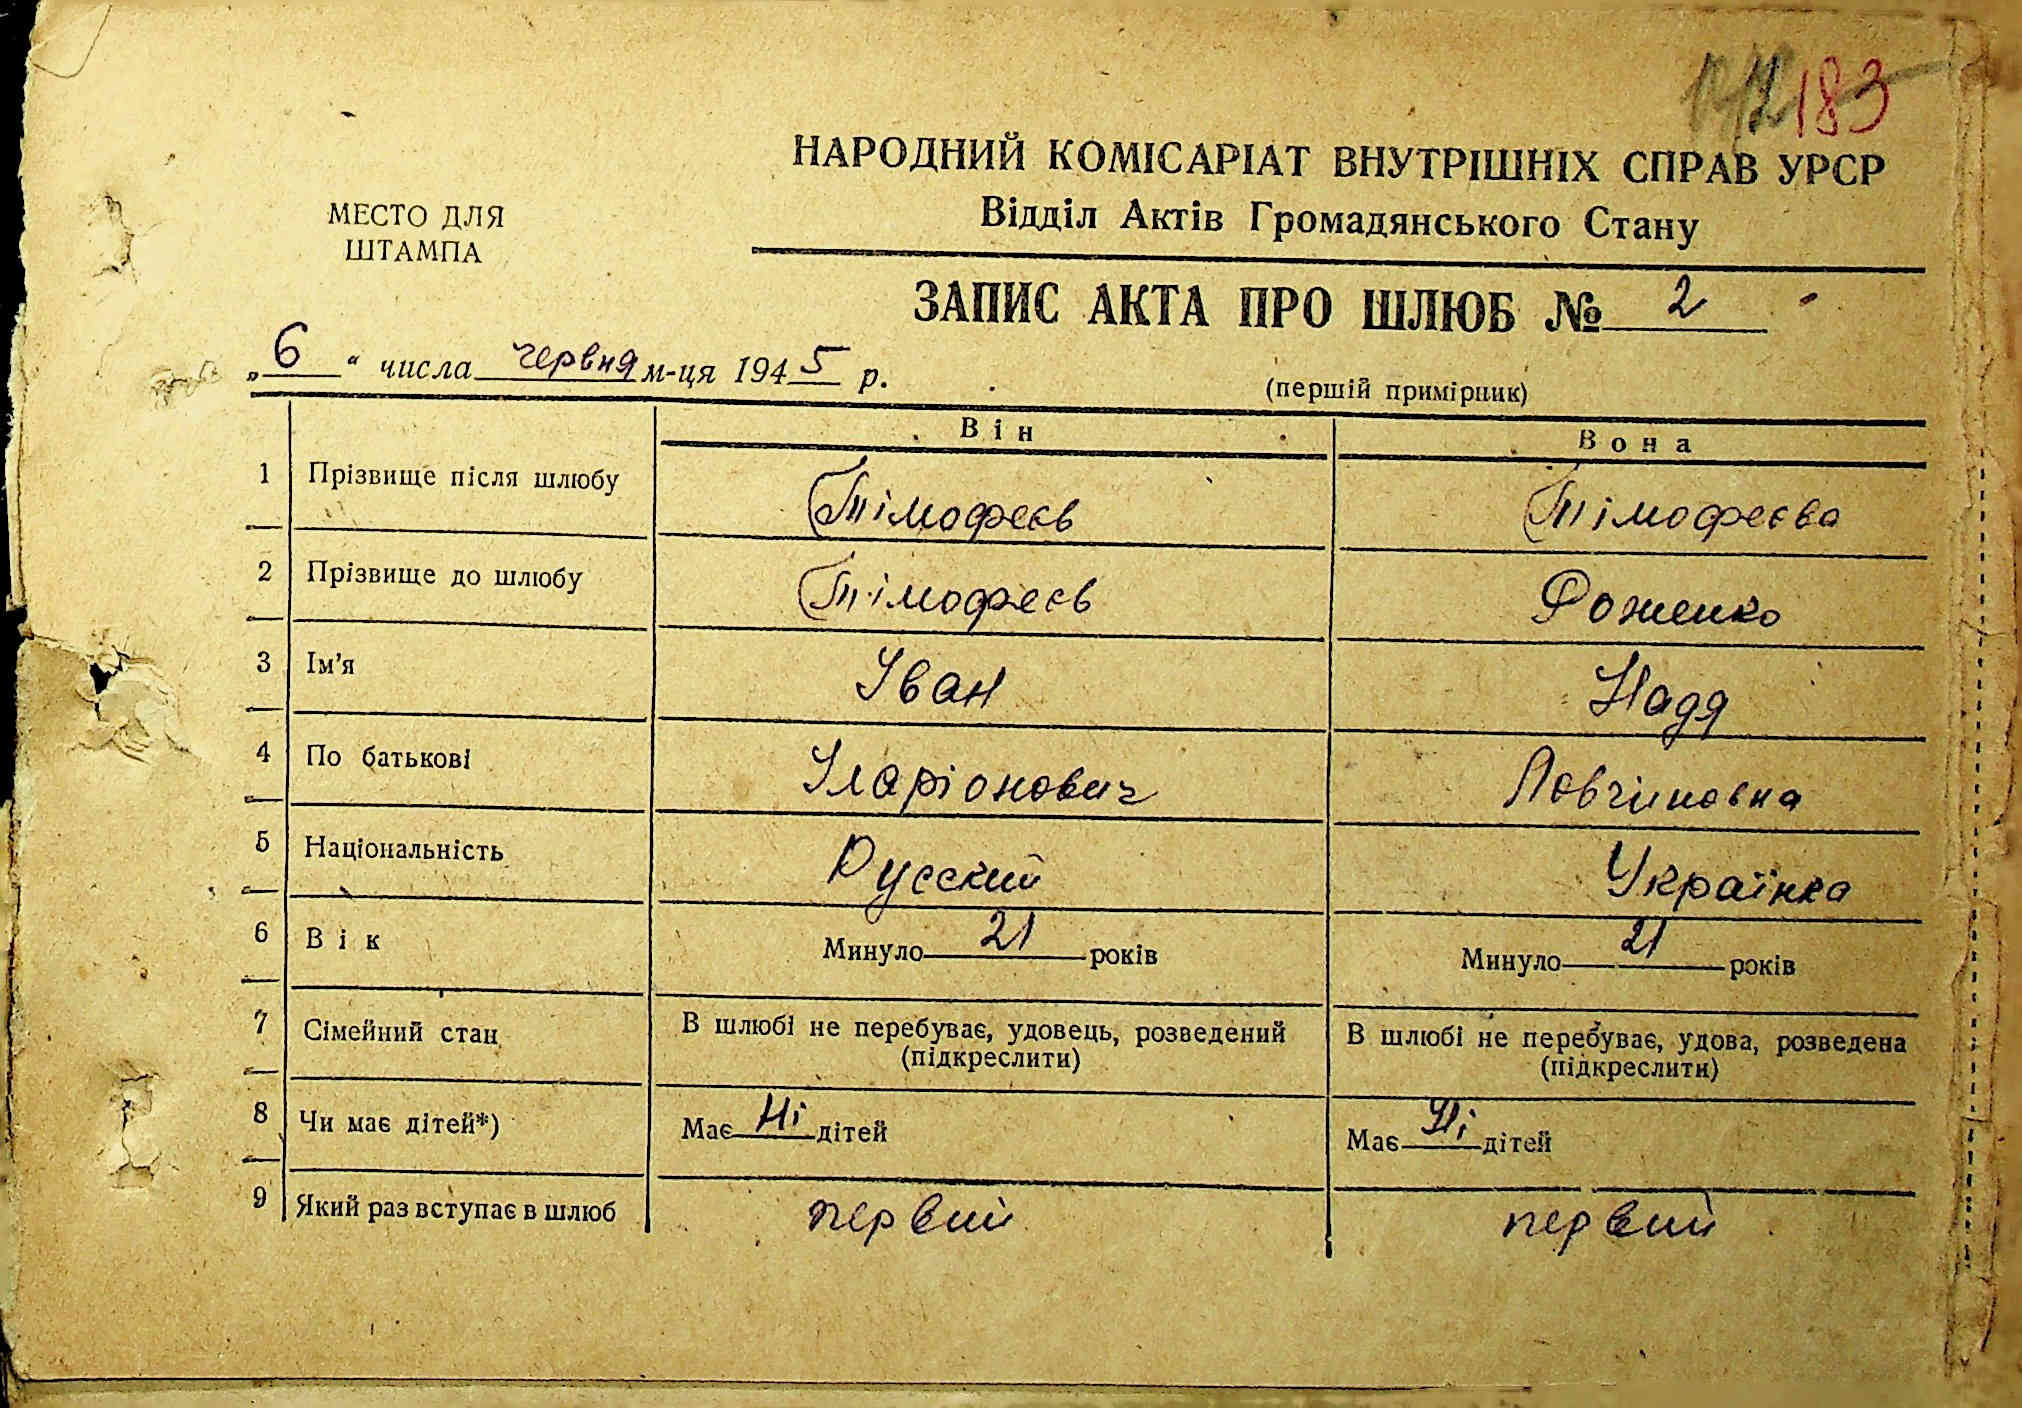 183
НАРОДНИЙ КОМІСАРІАТ ВНУТРІШНІХ СПРАВ УРСР
Відділ Актів Громадянського Стану
МЕСТО ДЛЯ
ШТАМПА
ЗАПИС АКТА ПРО ШЛЮБ № 2
„6“ числа червня м-ця 1945 р.
(першій примірник)
Він Вона
1 Прізвище після шлюбу Тімофеєв Тімофеєва
2 Прізвище до шлюбу Тімофеєв Фоженко
3 Ім'я Іван Надя
4 По батькові Іларіонович
5 Національність Русский Українка
6 Вік Минуло 21 років Минуло 21 років
7 Сімейний стан В шлюбі не перебуває, удовець, розведений В шлюбі не перебуває, удова, розведена
(підкреслити) (підкреслити)
8 Чи має дітей*) Має Ні дітей Має Ні дітей
9 Який раз вступає в шлюб первий первий